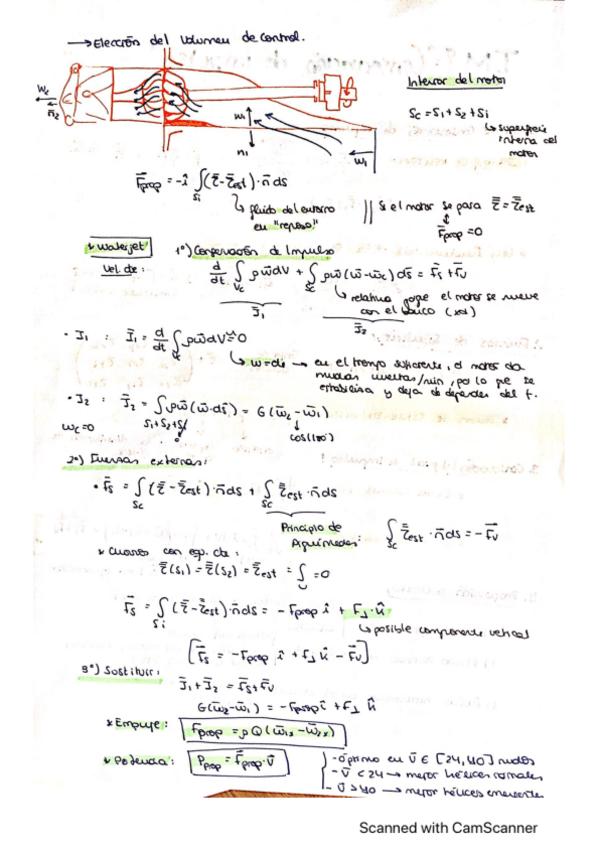 → Elección del Volumen de control.
Interior del motor
Sc = S1 + S2 + Si
↳ superficie interna del motor
Wc
n̄2
m̄1
n1
w̄1
F̄prop = -î ∫Si (τ̿ - τ̿est)·n̄ ds
↳ fluido del entorno en "reposo"
|| Si el motor se para τ̿ = τ̿est
↕
F̄prop = 0
* Waterjet
1º) Conservación de Impulso
Vel. cte:
d/dt ∫Vc ρw̄dV + ∫Sc ρw̄(w̄-w̄c)ds̄ = F̄s + F̄v
J̄1
↳ relativa porque el motor se mueve con el barco
J̄2
• J1 : J̄1 = d/dt ∫Vc ρw̄dV ≈ 0
↳ w = cte → en el tiempo suficiente, el motor da muchas vueltas/min, por lo que se estabiliza y deja de depender del t.
• J2 : J̄2 = ∫S1+S2+Si ρw̄(w̄·ds̄) = G(w̄2 - w̄1)
wc = 0
0
cos(180º)
2º) Fuerzas externas:
• F̄s = ∫Sc (τ̿ - τ̿est)·n̄ds + ∫Sc τ̿est·n̄ds
Principio de Arquímedes:
∫Sc τ̿est·n̄ds = -F̄v
τ̿(S1) = τ̿(S2) = τ̿est = ∫ = 0
F̄s = ∫Si (τ̿ - τ̿est)·n̄ds = -Fprop î + F⊥·k̂
↳ posible componente vertical
[F̄s = -Fprop î + F⊥ k̂ - F̄v]
3º) Sustituir:
J̄1 + J̄2 = F̄s + F̄v
G(w̄2 - w̄1) = -Fprop î + F⊥ k̂
* Empuje: Fprop = ρQ(w̄1x - w̄2x)
* Potencia: Pprop = F̄prop·v̄
- óptimo en v̄ ∈ [24, 40] nudos
- v̄ < 24 → mejor hélices normales
- v̄ > 40 → mejor hélices
Scanned with CamScanner